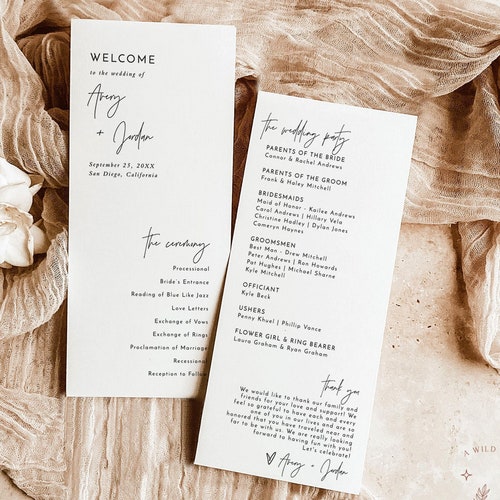 WELCOME
to the wedding of
Avery
+ Jordan
September 25, 20XX
San Diego, California
the ceremony
Processional
Bride's Entrance
Reading of Blue Like Jazz
Love Letters
Exchange of Vows
Exchange of Rings
Proclamation of Marriage
Recessional
Reception to Follow
the wedding party
PARENTS OF THE BRIDE
Connor & Rachel Andrews
PARENTS OF THE GROOM
Frank & Haley Mitchell
BRIDESMAIDS
Maid of Honor - Kailee Andrews
Carol Andrews | Hillary Vela
Christine Hadley | Dylan Jones
Cameryn Haynes
GROOMSMEN
Best Man - Drew Mitchell
Peter Andrews | Ron Howards
Pat Hughes | Michael Sharne
Kyle Mitchell
OFFICIANT
Kyle Beck
USHERS
Penny Khuel | Phillip Vance
FLOWER GIRL & RING BEARER
Laura Graham & Ryan Graham
thank you
We would like to thank our family and
friends for your love and support! We
feel so grateful to have each and every
one of you in our lives and are so
honored that you have traveled near and
far to be with us. We are really looking
forward to having fun with you!
Let's celebrate!
Avery + Jordan
A WILD